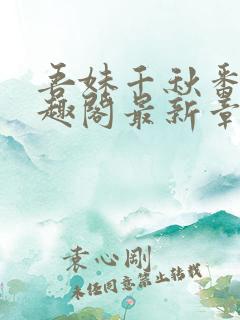 吾妹千秋番
趣阁最新章
袁心刚
未经同意禁止转载